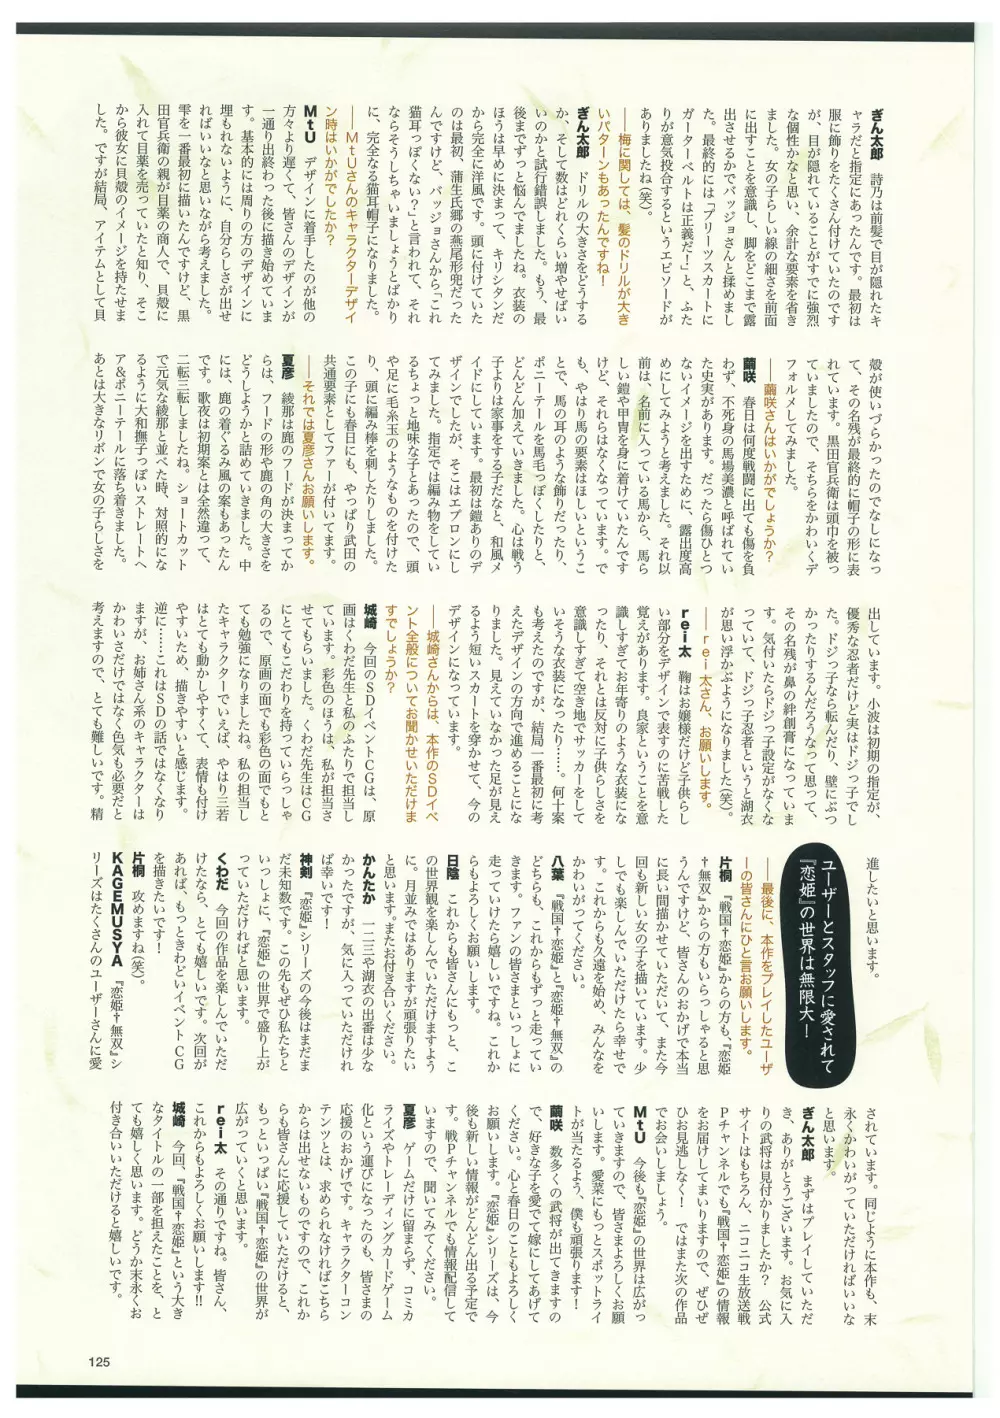 ぎん太郎　詩乃は前髪で目が隠れたキ
ャラだと指定にあったんです。最初は
服に飾りをたくさん付けていたのです
が、目が隠れていることがすでに強烈
な個性かなと思い、余計な要素を省き
ました。女の子らしい線の細さを前面
に出すことを意識し、脚をどこまで露
出させるかでバッジョさんと揉めまし
た。最終的には「プリーツスカートに
ガーターベルトは正義だ！」と、ふた
りが意気投合するというエピソードが
ありましたね（笑）。
――梅に関しては、髪のドリルが大き
いパターンもあったんですね！
ぎん太郎　ドリルの大きさをどうする
か、そして数はどれくらい増やせばい
いのかと試行錯誤しました。もう、最
後までずっと悩んでましたね。衣装の
ほうは早めに決まって、キリシタンだ
から完全に洋風です。頭に付けていた
のは最初、蒲生氏郷の燕尾形兜だった
んですけど、バッジョさんから「これ
猫耳っぽくない？」と言われて、それ
ならそうしちゃいましょうとばかり
に、完全なる猫耳帽子になりました。
――ＭtＵさんのキャラクターデザイ
ン時はいかがでしたか？
ＭtＵ　デザインに着手したのが他の
方々より遅くて、皆さんのデザインが
一通り出終わった後に描き始めていま
す。基本的には周りの方のデザインに
埋もれないように、自分らしさが出せ
ればいいなと思いながら考えました。
雫を一番最初に描いたんですけど、黒
田官兵衛の親が目薬の商人で、貝殻に
入れて目薬を売っていたと知り、そこ
から彼女に貝殻のイメージを持たせま
した。ですが結局、アイテムとして貝
殻が使いづらかったのでなしになっ
て、その名残が最終的に帽子の形に表
れています。黒田官兵衛は頭巾を被っ
ていましたので、そちらをかわいくデ
フォルメしてみました。
――繭咲さんはいかがでしょうか？
繭咲　春日は何度戦闘に出ても傷を負
わず、不死身の馬場美濃と呼ばれてい
た史実があります。だったら傷ひとつ
ないイメージを出すために、露出度高
めにしてみようと考えました。それ以
前は、名前に入っている馬から、馬ら
しい鎧や甲冑を身に着けていたんです
けど、それらはなくなっています。で
も、やはり馬の要素はほしいというこ
とで、馬の耳のような飾りだったり、
ポニーテールを馬毛っぽくしたりと、
どんどん加えていきました。心は戦う
子よりは家事をする子だなと、和風メ
イドにしています。最初は鎧ありのデ
ザインでしたが、そこはエプロンにし
てみました。指定では編み物をしてい
るちょっと地味な子とあったので、頭
や足に毛糸玉のようなものを付けた
り、頭に編み棒を刺したりしました。
この子にも春日にも、やっぱり武田の
共通要素としてファーが付いてます。
――それでは夏彦さんお願いします。
夏彦　綾那は鹿のフードが決まってか
らは、フードの形や鹿の角の大きさを
どうしようかと詰めていきました。中
には、鹿の着ぐるみ風の案もあったん
です。歌夜は初期案とは全然違って、
二転三転しましたね。ショートカット
で元気な綾那と並べた時、対照的にな
るように大和撫子っぽいストレートヘ
ア＆ポニーテールに落ち着きました。
あとは大きなリボンで女の子らしさを
出しています。小波は初期の指定が、
優秀な忍者だけど実はドジっ子でし
た。ドジっ子なら転んだり、壁にぶつ
かったりするんだろうなって思って、
その名残が鼻の絆創膏になっていま
す。気付いたらドジっ子設定がなくな
っていて、ドジっ子忍者というと湖衣
が思い浮かぶようになりました（笑）。
――ｒｅｉ太さん、お願いします。
ｒｅｉ太　鞠はお嬢様だけど子供らし
い部分をデザインで表すのに苦戦した
覚えがあります。良家ということを意
識しすぎてお年寄りのような衣装にな
ったり、それとは反対に子供らしさを
意識しすぎて空き地でサッカーをして
いそうな衣装になったり……。何十案
も考えたのですが、結局一番最初に考
えたデザインの方向で進めることにな
りました。見えていなかった足が見え
るよう短いスカートを穿かせて、今の
デザインになっています。
――城崎さんからは、本作のＳＤイベ
ント全般についてお聞かせいただけま
すでしょうか？
城崎　今回のＳＤイベントＣＧは、原
画はくわだ先生と私のふたりで担当し
ています。彩色のほうは、私が担当さ
せてもらいました。くわだ先生はＣＧ
にとてもこだわりを持っていらっしゃ
るので、原画の面でも彩色の面でもと
ても勉強になりましたね。私の担当し
たキャラクターでいえば、やはり三若
はとても動かしやすくて、表情も付け
やすいため、描きやすいと感じます。
逆に……これはＳＤの話ではなくなり
ますが、お姉さん系のキャラクターは
かわいさだけではなく色気も必要だと
考えますので、とても難しいです。精
進したいと思います。
ユーザーとスタッフに愛されて
『恋姫』の世界は無限大！
――最後に、本作をプレイしたユーザ
ーの皆さんにひと言お願いします。
片桐　『戦国†恋姫』からの方も、『恋姫
†無双』からの方もいらっしゃると思
うんですけど、皆さんのおかげで本当
に長い間描かせていただいて、また今
回も新しい女の子を描いています。少
しでも楽しんでいただけたら幸せで
す。これからも久遠を始め、みんなを
かわいがってください。
八葉　『戦国†恋姫』と『恋姫†無双』の
どちらも、これからもずっと走ってい
きます。ファンの皆さまといっしょに
走っていけたら嬉しいですね。これか
らもよろしくお願いします。
日陰　これからも皆さんにもっと、こ
の世界観を楽しんでいただけますよう
に。月並みではありますが頑張りたい
と思います。またお付き合いください。
かんたか　一二三や湖衣の出番は少な
かったですが、気に入っていただけれ
ば幸いです！
神剣　『恋姫』シリーズの今後はまだま
だ未知数です。この先もぜひ私たちと
いっしょに、『恋姫』の世界で盛り上が
っていただければと思います。
くわだ　今回の作品を楽しんでいただ
けたなら、とても嬉しいです。次回が
あれば、もっときわどいイベントＣＧ
を描きたいです！
片桐　攻めますね（笑）。
ＫＡＧＥＭＵＳＹＡ　『恋姫†無双』シ
リーズはたくさんのユーザーさんに愛
されています。同じように本作も、末
永くかわいがっていただければいいな
と思います。
ぎん太郎　まずはプレイしていただ
き、ありがとうございます。お気に入
りの武将は見付かりましたか？　公式
サイトはもちろん、ニコニコ生放送戦
Ｐチャンネルでも『戦国†恋姫』の情報
をお届けしてまいりますので、ぜひぜ
ひお見逃しなく！　ではまた次の作品
でお会いしましょう。
ＭtＵ　今後も『恋姫』の世界は広がっ
ていきますので、皆さまよろしくお願
いします。愛菜にもっとスポットライ
トが当たるよう、僕も頑張ります！
繭咲　数多くの武将が出てきますの
で、好きな子を愛でて嫁にしてあげて
ください。心と春日のこともよろしく
お願いします。『恋姫』シリーズは、今
後も新しい情報がどんどん出る予定で
す。戦Ｐチャンネルでも情報配信して
いますので、聞いてみてください。
夏彦　ゲームだけに留まらず、コミカ
ライズやトレーディングカードゲーム
化という運びになったのも、皆さまの
応援のおかげです。キャラクターコン
テンツとは、求められなければこちら
からは出せないものですので、これか
らも皆さんに応援していただけると、
もっといっぱい『戦国†恋姫』の世界が
広がっていくと思います。
ｒｅｉ太　その通りですね。皆さん、
これからもよろしくお願いします!!
城崎　今回、『戦国†恋姫』という大き
なタイトルの一部を担えたことを、と
ても嬉しく思います。どうか末永くお
付き合いいただけると嬉しいです。
125